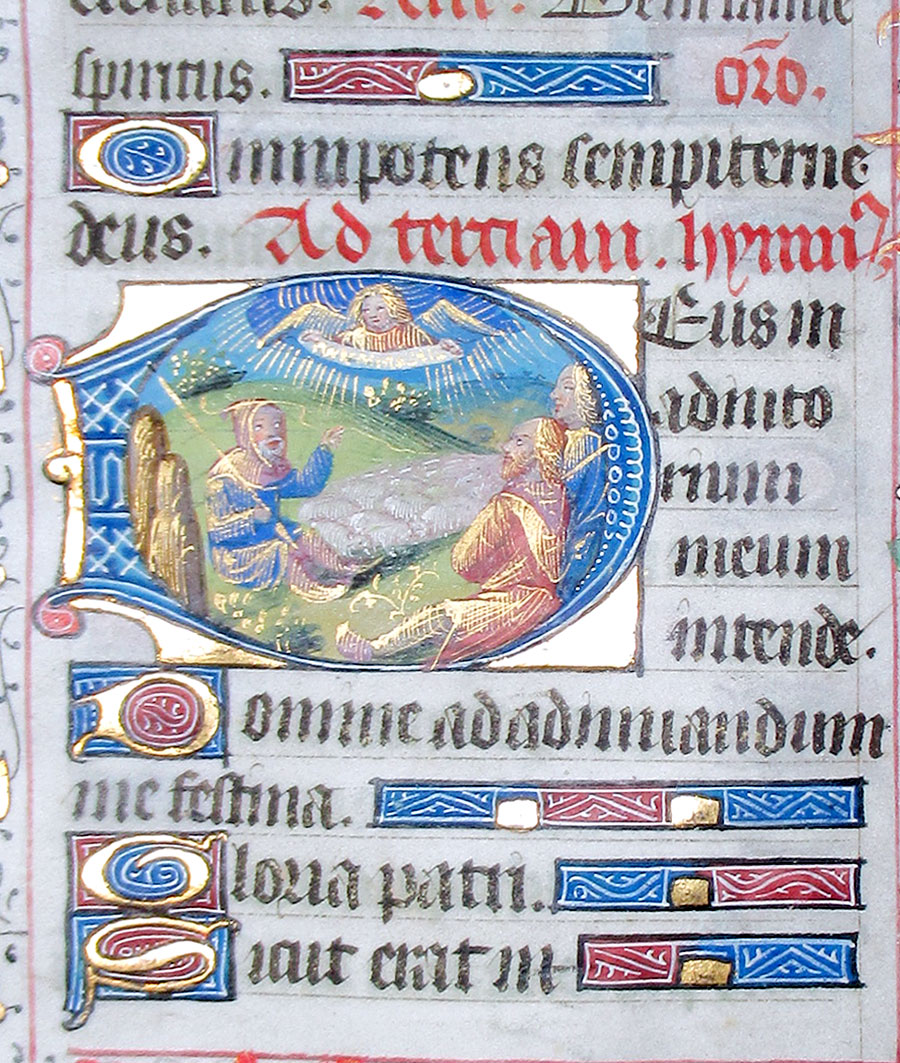 spiritus. oro̅.
Omnipotens sempiterne
deus. Ad tertiam. hymnꝰ
DEus in
adiuto
rium
meum
intende.
Domine ad adiuuandum
me festina.
Gloria patri.
Sicut erat in